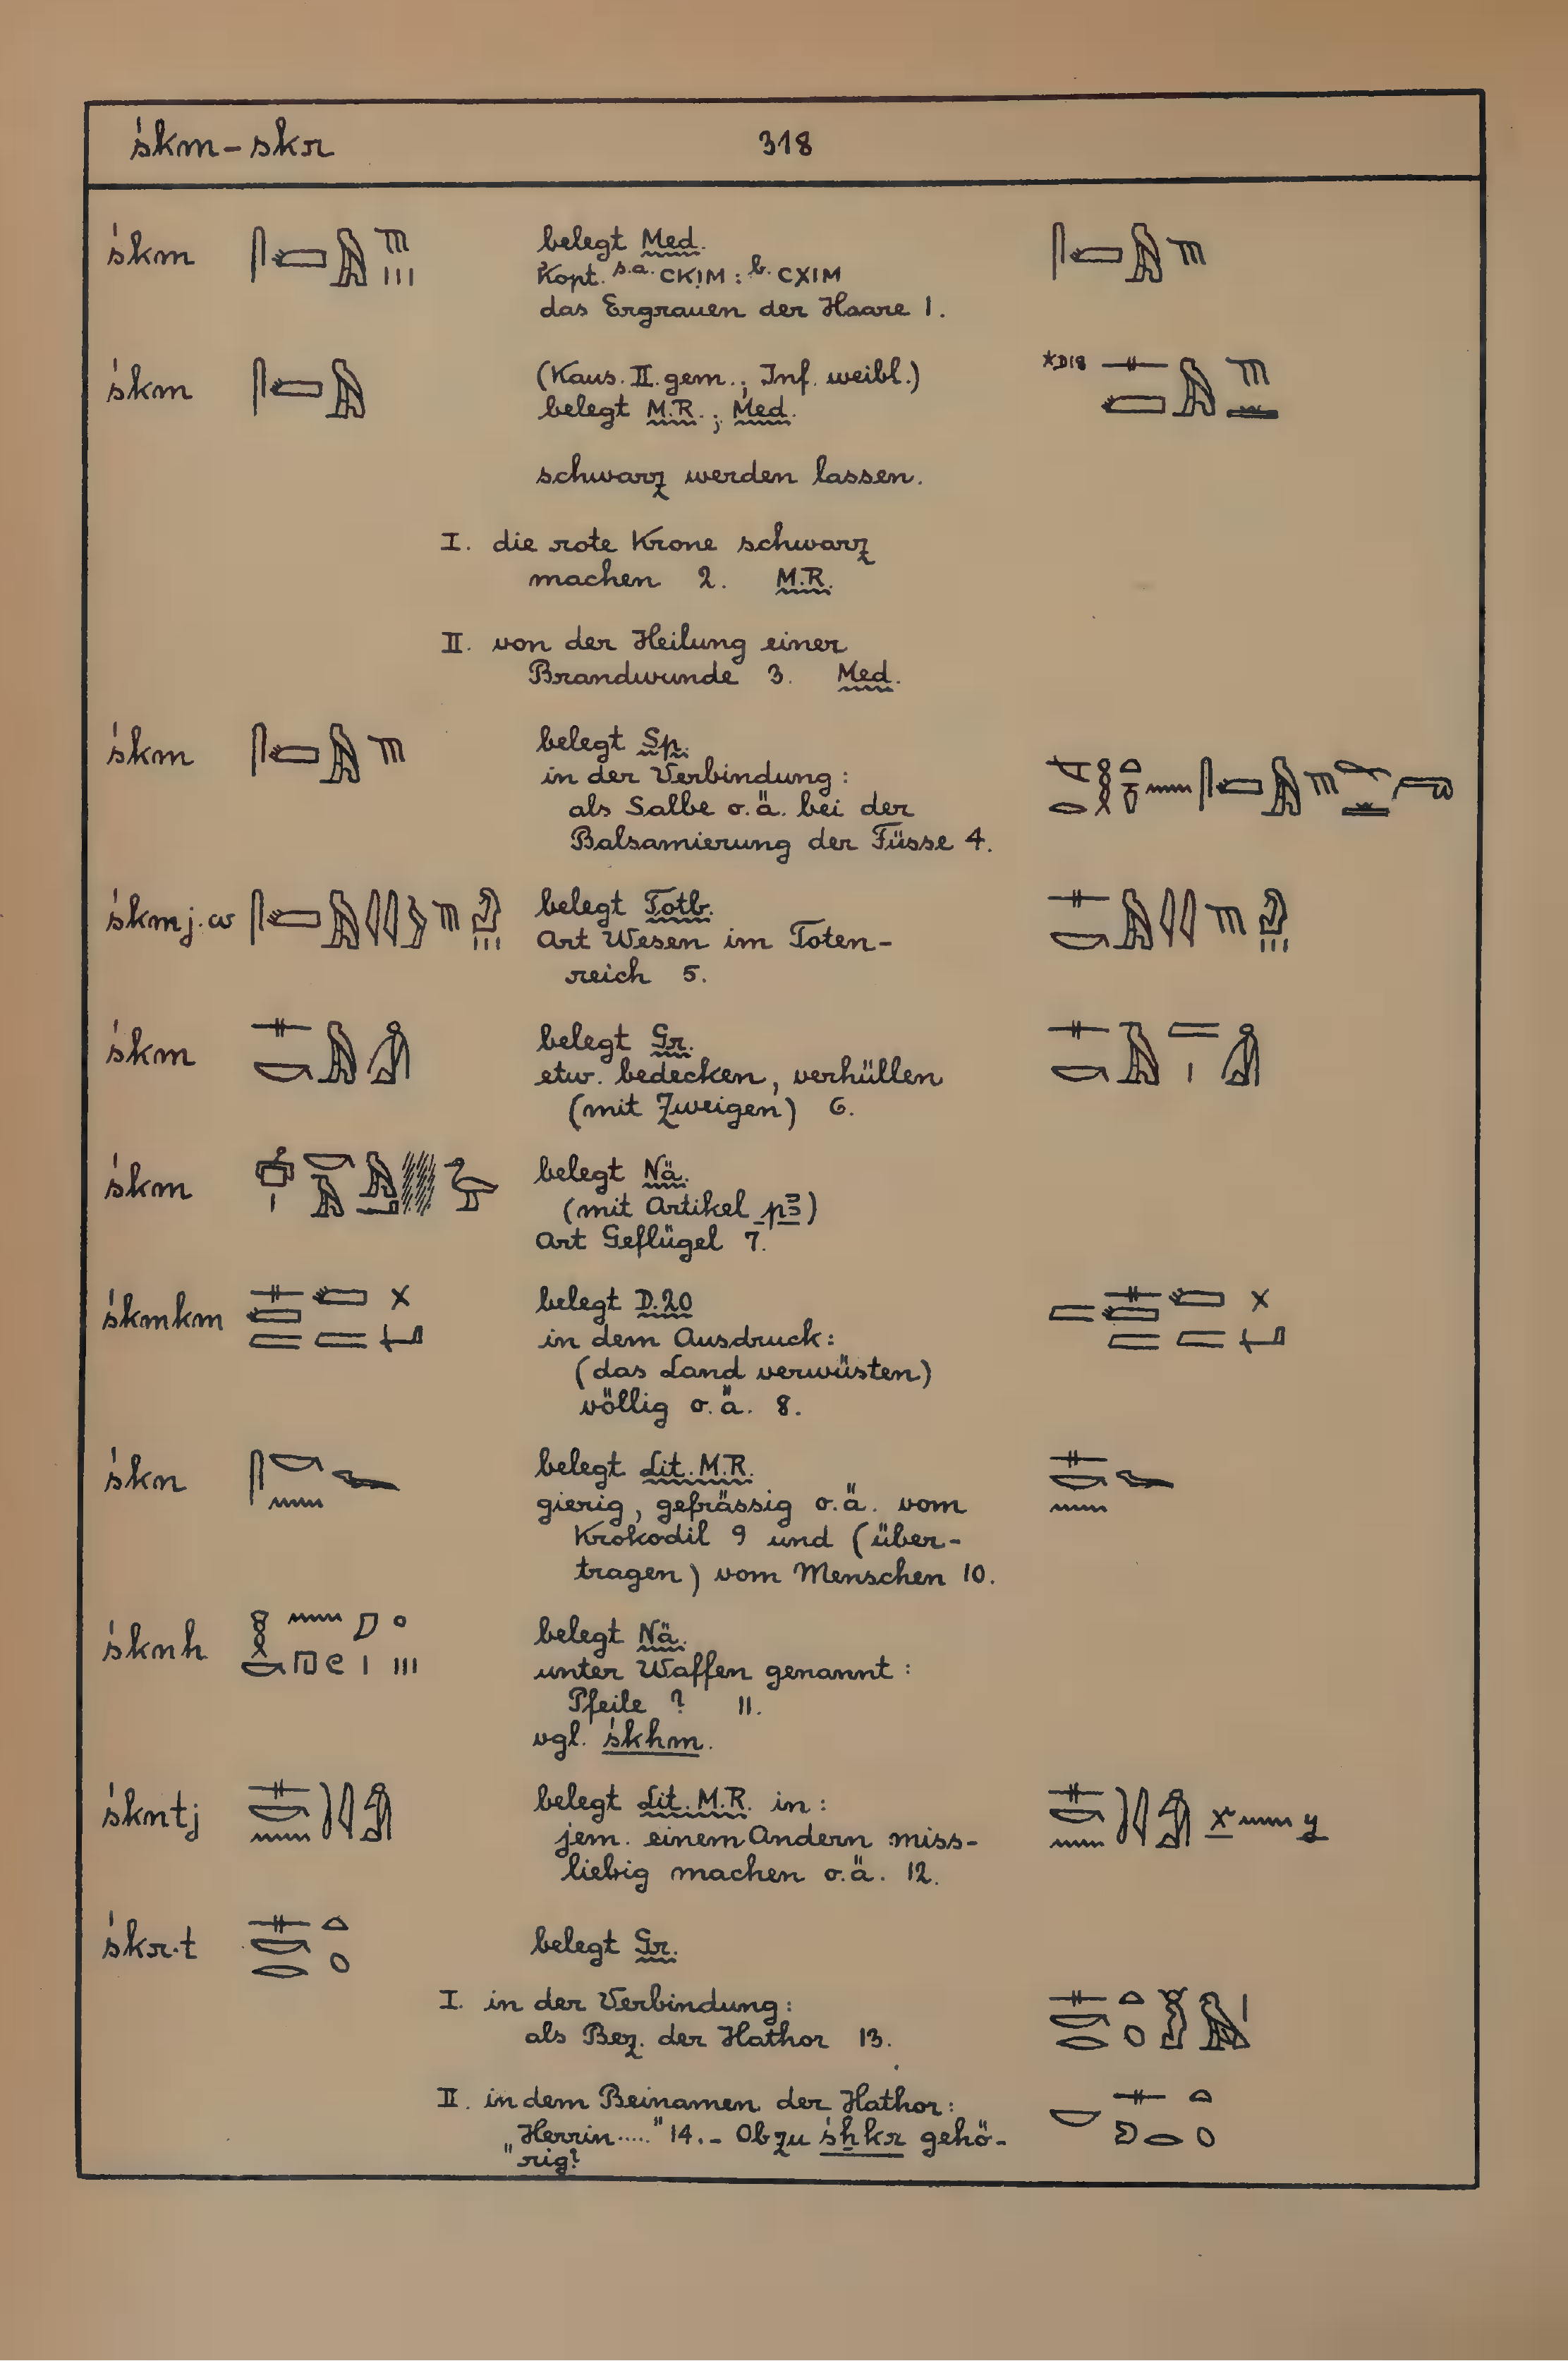 śkm – skr 318
śkm belegt Med.
Kopt. s.a. CKIM : b. CXIM
das Ergrauen der Haare 1.
śkm (Kaus. II. gem.; Inf. weibl.) *D18
belegt M.R.; Med.
schwarz werden lassen.
I. die rote Krone schwarz
machen 2. M.R.
II. von der Heilung einer
Brandwunde 3. Med.
śkm belegt Sp.
in der Verbindung:
als Salbe o.ä. bei der
Balsamierung der Füsse 4.
śkmj.w belegt Totb.
Art Wesen im Toten-
reich 5.
śkm belegt Gr.
etw. bedecken, verhüllen
(mit Zweigen) 6.
śkm belegt Nä.
(mit Artikel pꜣ)
Art Geflügel 7.
śkmkm belegt D.20
in dem Ausdruck:
(das Land verwüsten)
völlig o.ä. 8.
śkn belegt Lit. M.R.
gierig, gefrässig o.ä. vom
Krokodil 9 und (über-
tragen) vom Menschen 10.
śknh belegt Nä.
unter Waffen genannt:
Pfeile ? 11.
vgl. śkhm.
śkntj belegt Lit. M.R. in: x y
jem. einem Andern miss-
liebig machen o.ä. 12.
śkr.t belegt Gr.
I. in der Verbindung:
als Bez. der Hathor 13.
II. in dem Beinamen der Hathor:
„Herrin....." 14. – Ob zu śẖkr gehö-
rig?